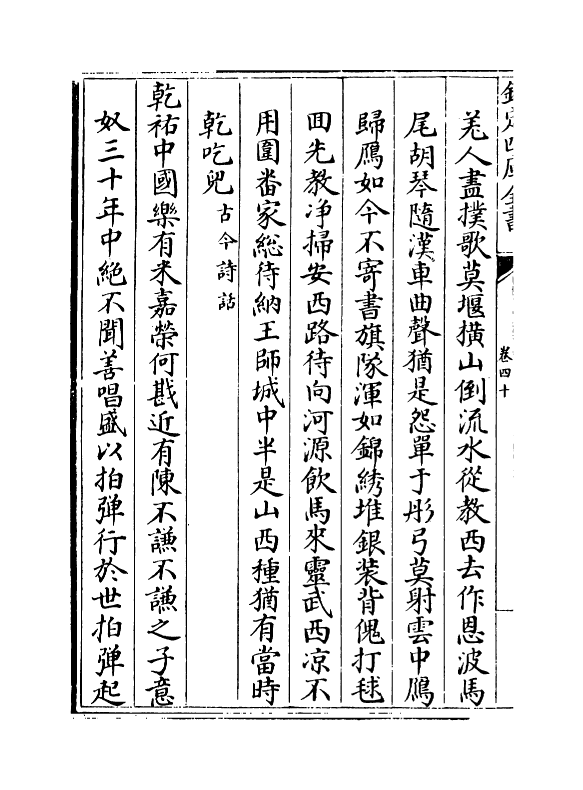 欽定四庫全書
卷四十
羌人盡撲歌莫堰橫山倒流水從教西去作恩波馬
尾胡琴隨漢車曲聲猶是怨單于彤弓莫射雲中鴈
歸鴈如今不寄書旗隊渾如錦綉堆銀装背傀打毬
回先教净掃安西路待向河源飲馬來靈武西凉不
用圍畨家総待納王師城中半是山西種猶有當時
乾吃兒古今詩話
乾祐中國樂有米嘉榮何戡近有陳不謙不謙之子意
奴三十年中絶不聞善唱盛以拍弹行於世拍弹起